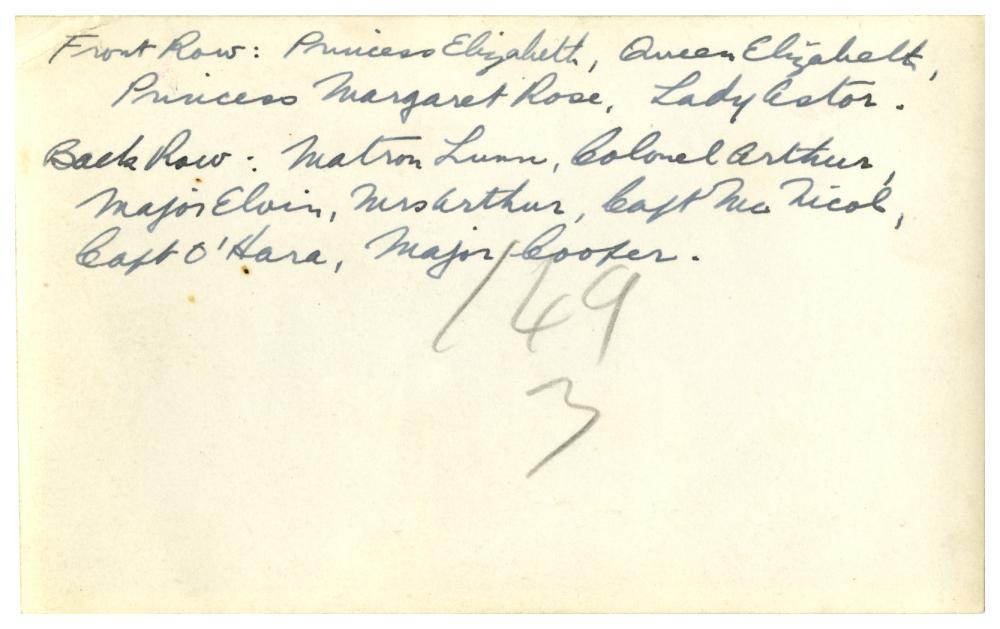 Front Row: Princess Elizabeth, Queen Elizabeth,
Princess Margaret Rose, Lady Astor.
Back Row: Matron Lunn, Colonel Arthur,
Major Elvin, Mrs Arthur, Capt McNicol,
Capt O'Hara, Major Cooper.
149
3